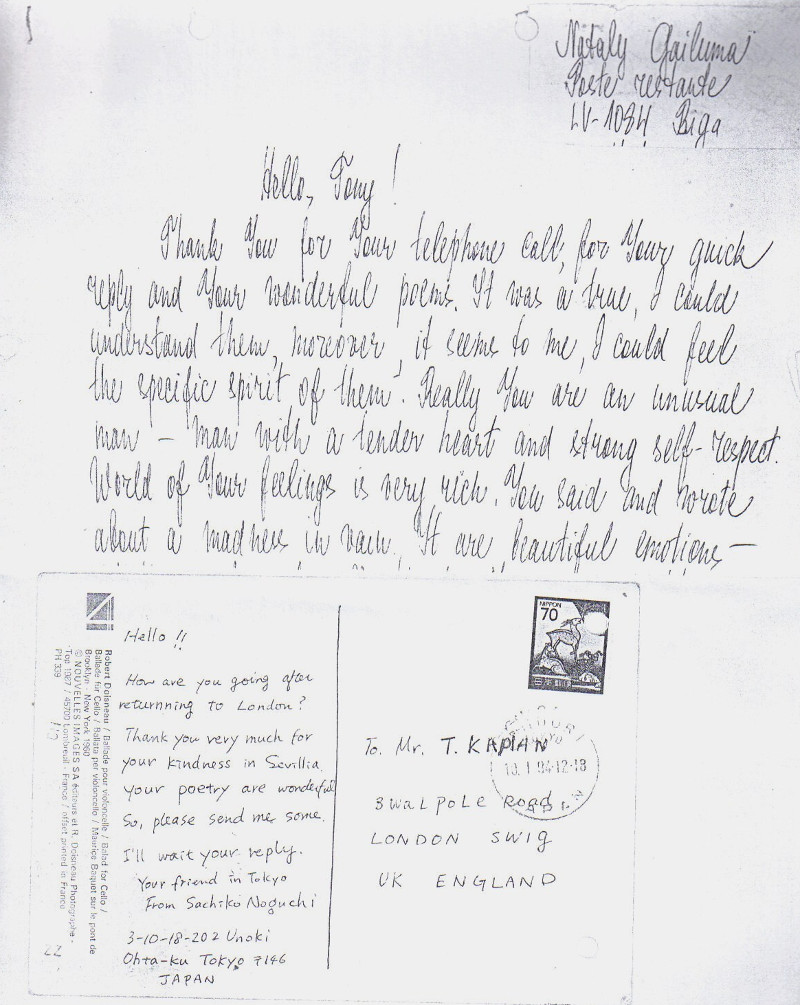 Nataly Gailuma
Poste restante
LV-1084 Riga
Hello, Tony!
Thank You for Your telephone call, for Your quick
reply and Your wonderful poems. It was a true, I could
understand them, moreover, it seems to me, I could feel
the specific spirit of them. Really You are an unusual
man – man with a tender heart and strong self-respect.
World of Your feelings is very rich. You said and wrote
about a madness in vain. It are beautiful emotions –
Robert Doisneau / Ballade pour violoncelle / Ballad for Cello /
Ballade für Cello / Ballata per violoncello / Maurice Baquet sur le pont de
Brooklyn - New York 1960
© NOUVELLES IMAGES SA éditeurs et R. Doisneau Photographe -
Top 1987 / 45700 Lombreuil - France / offset printed in France
PH 339
Hello !!
How are you going after
returnning to London?
Thank you very much for
your kindness in Sevillia.
Your poetry are wonderful
So, please send me some.
I'll wait your reply.
Your friend in Tokyo
From Sachiko Noguchi
3-10-18-202 Unoki
Ohta-ku Tokyo 〒146
JAPAN
NIPPON
70
To. Mr. T. KAPlAN
3 WALPOLE Road
LONDON SW19
UK ENGLAND
22